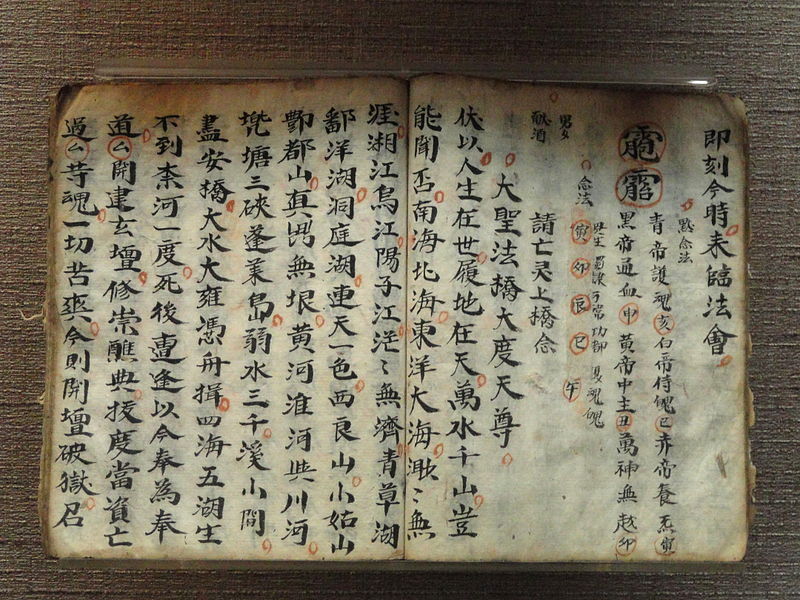 即刻今時来臨法會
念法
青帝護魂亥白帝侍魄巳赤帝養炁寅
黑帝通血申黃帝中主丑萬神無越卯
念法
寅卯辰巳午
男女
酒
請亡灵上橋念
大聖法橋大度天尊
伏以人生在世履地在天萬水千山豈
能聞否南海北海東洋大海〻無
涯湘江烏江陽子江茫〻無濟青草湖
鄱洋湖洞庭湖連天一色西良山小姑山
酆都山真無垠黃河淮河與川河
塘三硤蓬萊島弱水三千溪小間
盡安橋大水大雍憑舟揖四海五湖生
不到柰河一度死後亶逢以今奉為奉
道厶開建玄壇修崇醮典拔度當資亡
過厶等魂一切苦爽今則開壇破獄召